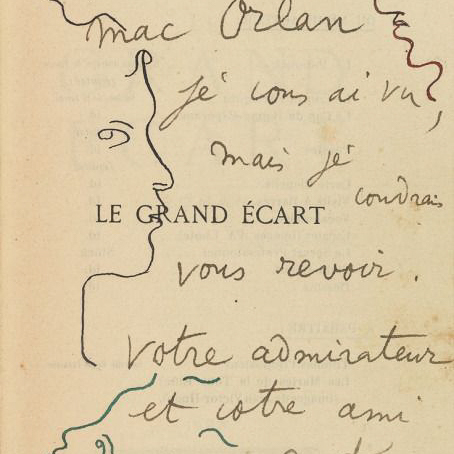 mac Orlan
je vous ai vu,
mais je
voudrais
LE GRAND ÉCART
vous revoir.
votre admirateur
et votre ami